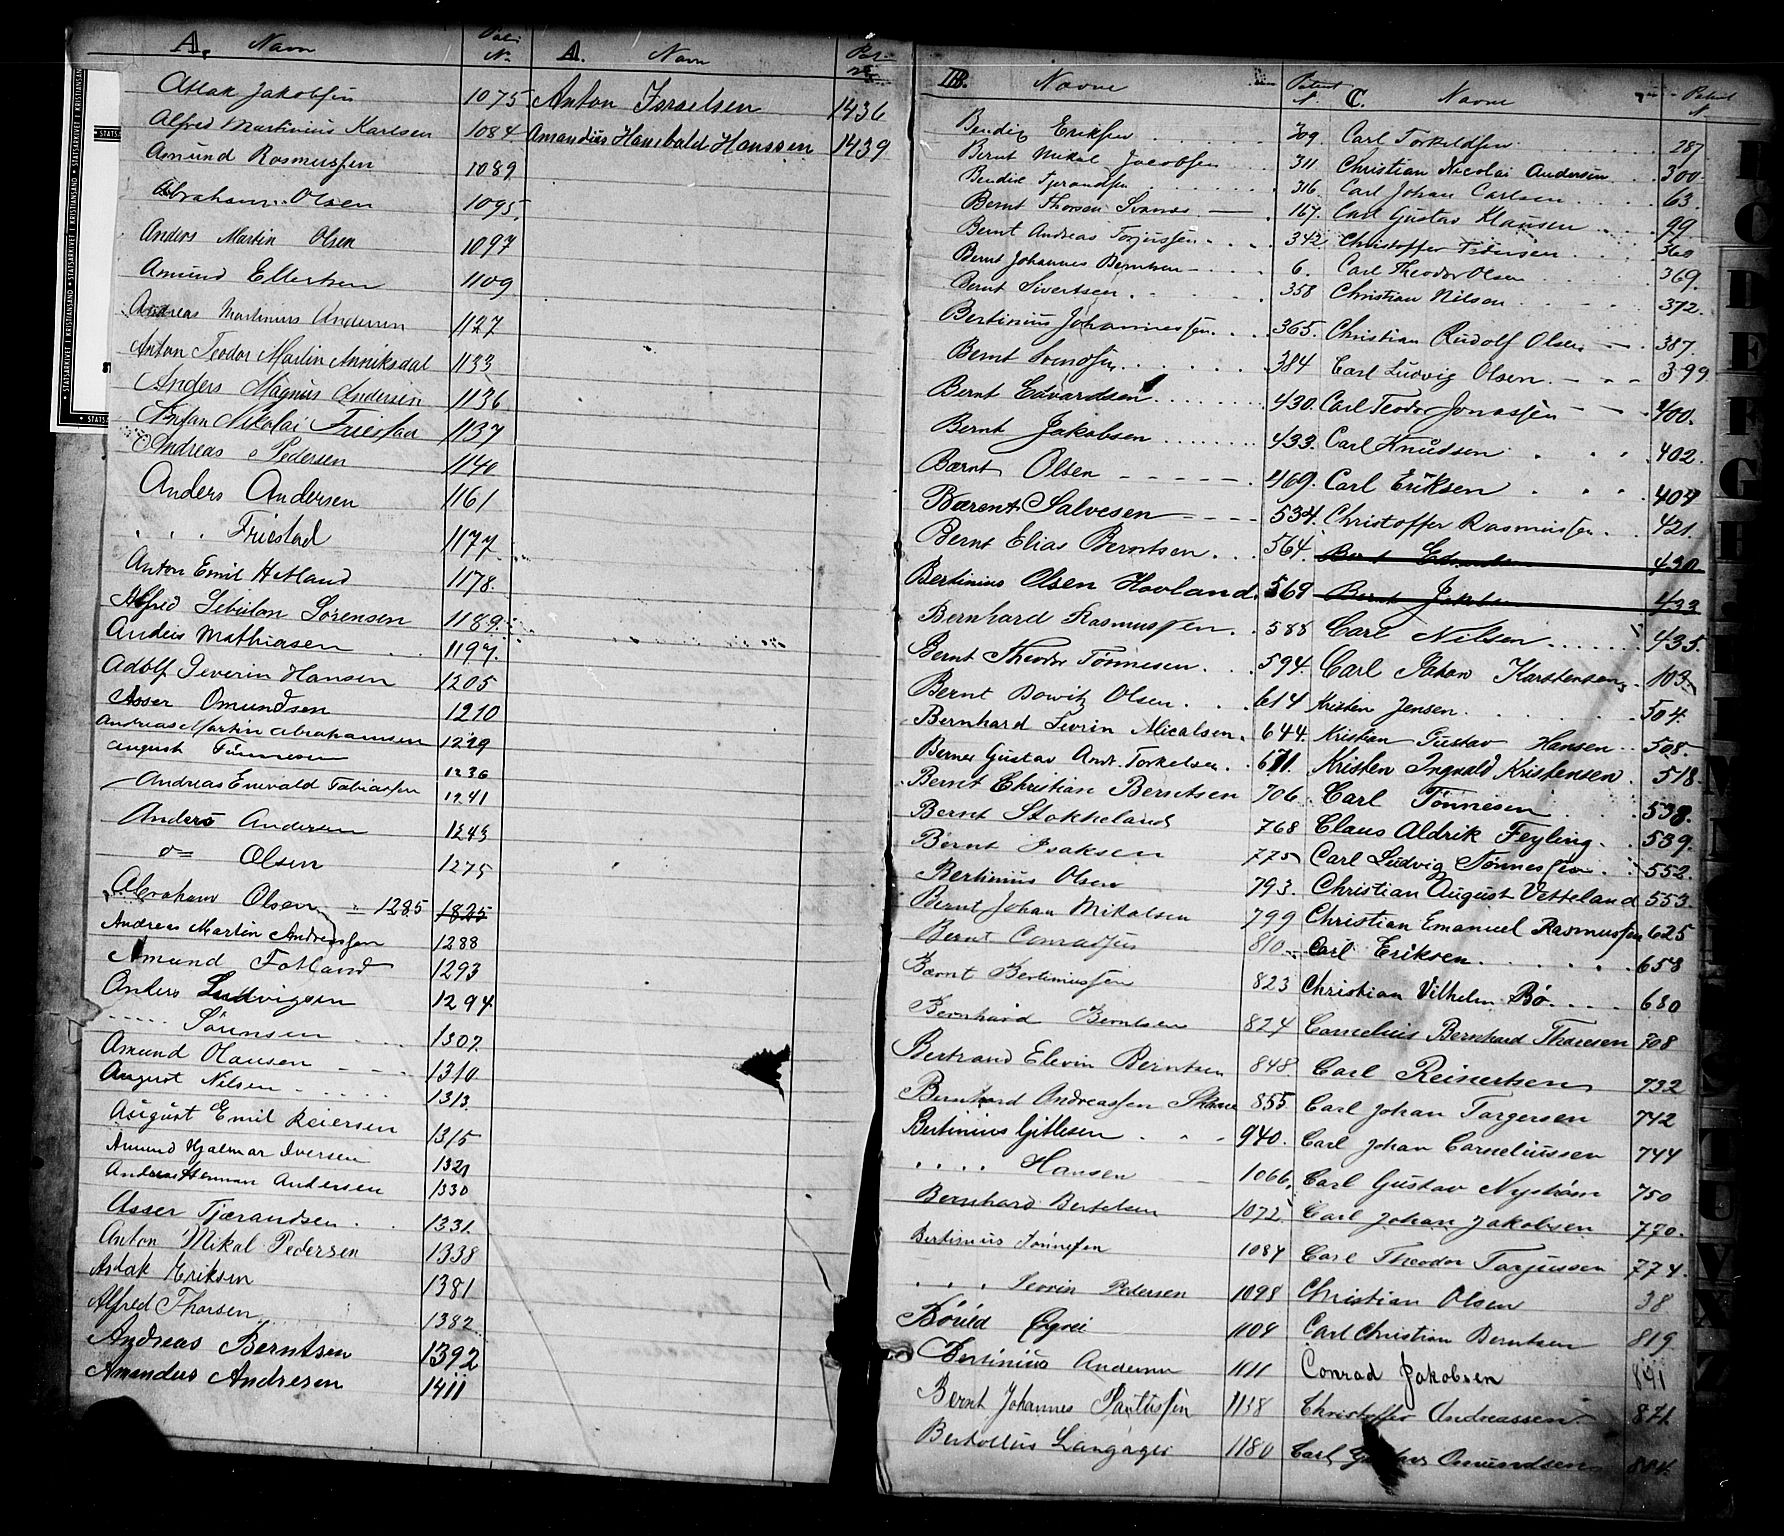 A. Navn
N.
Aslak Jakobsen 1075
Alfred Martinius Karlsen 1084
Amund Rasmussen 1089
Abraham Olsen 1095
Anders Martin Olsen 1097
Amund Ellertsen 1109
Andreas Martinius Andersen 1127
Anton Teodor Martin Anniksdal 1133
Anders Magnus Andersen 1136
Nikolai Friestad 1137
Andreas Pedersen 1140
Anders Andersen 1161
" " Friestad 1177
Anton Emil Hetland 1178
Alfred Sebulon Sørensen 1189
Anders Mathiasen 1197
Adolf Severin Hansen 1205
Asser Omundsen 1210
Andreas Martin Abrahamsen 1229
August Tønnesen 1236
Andreas Enevald Tobiassen 1241
Anders Andersen 1243
do Olsen 1275
Abraham Olsen 1285 1825
Andreas Martin Andreassen 1288
Amund Fotland 1293
Anders Ludvigsen 1294
" Sørensen 1307
Amund Olausen 1310
August Nilsen 1313
August Emil Reiersen 1315
Amund Hjalmar Iversen 1321
Andreas Herman Andersen 1330
Asser Tjærandsen 1331
Anton Mikal Pedersen 1338
Aslak Eriksen 1381
Alfred Thorsen 1382
Andreas Berntsen 1392
Amandus Andresen 1411
A. Navn
Anton Isaelsen 1436
Amandus Hanibald Hanssen 1439
B. Navne Patent N.
Bendix Eriksen 309
Bernt Mikal Jacobsen 311
Bendik Tjerandsen 316
Bernt Thorsen Svanes 167
Bernt Andreas Torjussen 342
Bernt Johannes Berntsen 6
Bernt Sivertsen 358
Bertinius Johannessen 365
Bernt Svendsen 384
Bernt Edvardsen 430
Bernt Jakobsen 433
Bærnt Olsen 469
Bærent Salvesen 534
Bernt Elias Berntsen 564
Bertinius Olsen Hovland 569
Bernhard Rasmussen 588
Bernt Theodor Tønnesen 594
Bernt Dowitz Olsen 614
Bernhard Sevrin Micalsen 644
Berner Gustav Andr. Torkelsen 671
Bernt Christian Berntsen 706
Bernt Stokkeland 768
Bernt Isaksen 775
Bertinius Olsen 793
Bernt Johan Mikalsen 799
Bernt Conradsen 810
Bærnt Bertinussen 823
Bernhard Berntsen 824
Bertrand Elevin Berntsen 848
Bernhard Andreassen Skaae 855
Bertinius Gitlesen 940
" " Hansen 1066
Bernhard Bertelsen 1072
Bertinius Tønnesen 1084
" " Severin Pedersen 1098
Børild Egrei 1104
Bertinius Andersen 1111
Bernt Johannes Paulussen 1138
Bertolius Langager 1180
C. Navne Patent N
Carl Torkildsen 287
Christian Nicolai Andersen 300
Carl Johan Carlsen 63
Carl Gustav Klausen 99
Christoffer Pedersen 360
Carl Theodor Olsen 369
Christian Nilsen 372
Christian Rudolf Olsen 387
Carl Ludvig Olsen 399
Carl Teodor Jonassen 400
Carl Knudsen 402
Carl Eriksen 404
Christoffer Rasmussen 421
Bernt Edvardsen 430
Bernt Jakobsen 433
Carl Nilsen 435
Carl Johan Karstensen 103
Kristen Jensen 504
Kristian Gustav Hansen 508
Kristen Ingvald Kristensen 518
Carl Tønnesen 538
Claus Aldrik Feyling 539
Carl Ludvig Tønnessen 552
Christian August Vetteland 553
Christian Emanuel Rasmussen 625
Carl Eriksen 658
Christian Vilhelm Bø 680
Cornelius Bernhard Thorsen 708
Carl Reinertsen 732
Carl Johan Torgersen 742
Carl Johan Corneliussen 744
Carl Gustav Nystrøm 750
Carl Johan Jakobsen 770
Carl Theodor Torjussen 774
Christian Olsen 38
Carl Christian Berntsen 819
Conrad Jakobsen 841
Christoffer Andreassen 871
Carl Omundsen 804